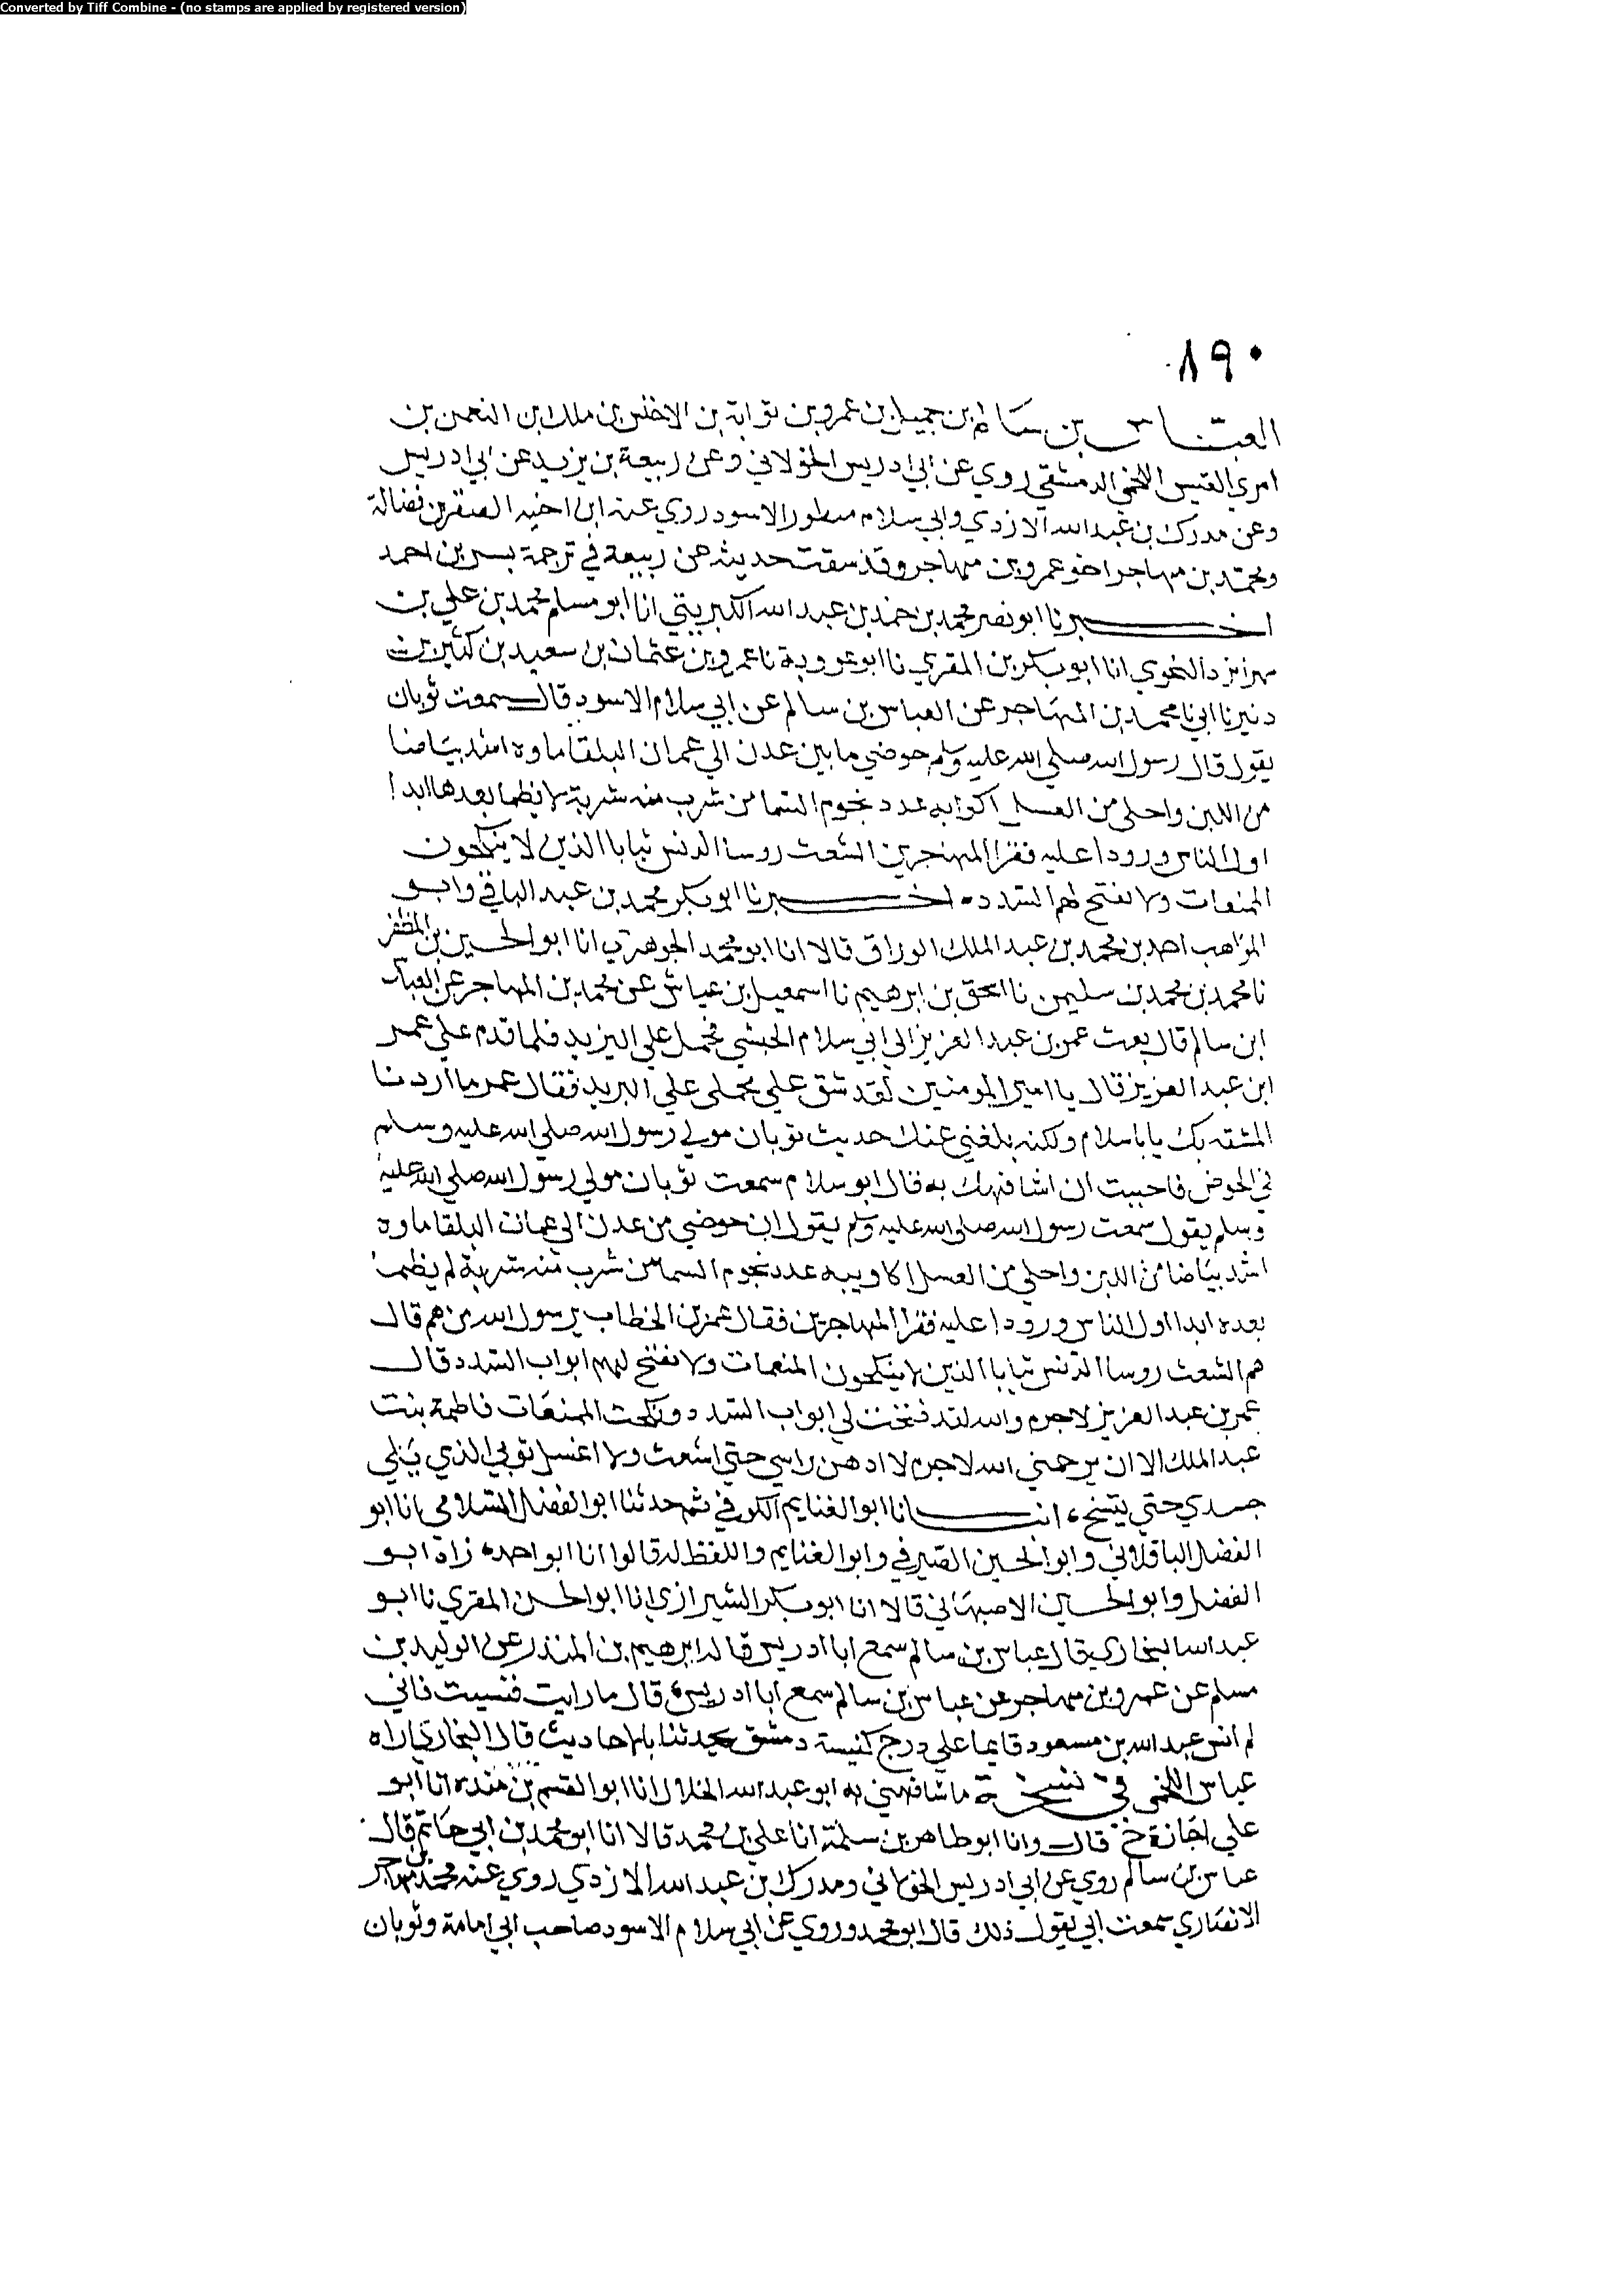 Converted by Tiff Combine - (no stamps are applied by registered version)
٨٩٠
العباس بن سالم بن جميل بن عمرو بن ثوابة بن الاخنس بن ملك بن النعمن بن
امرئ القيس اللخمي الدمشقي روي عن ابي ادريس الخولاني وعن ربيعة بن يزيد عن ابي ادريس
وعن مدرك بن عبد الله الازدي وابي سلام ممطور الاسود روي عنه ابن اخيه الصقر بن فضالة
ومحمد بن مهاجر اخو عمرو بن مهاجر وقد سقت حديثه عن ربيعة في ترجمة بسر بن احمد
اخبرنا ابو نصر محمد بن حمد بن عبد الله الكبريتي انا ابو مسلم محمد بن علي بن
مهرابزد النحوي انا ابو بكر بن المقري نا ابو عروبة نا عمرو بن عثمان بن سعيد بن كثير بن
دنير نا ابي نا محمد بن المهاجر عن العباس بن سالم عن ابي سلام الاسود قال سمعت ثوبان
يقول قال رسول الله صلي الله عليه وسلم حوضي ما بين عدن الي عمان البلقا ماوه اشد بياضا
من اللبن واحلي من العسل اكوابه عدد نجوم السما من شرب منه شربة لا يظما بعدها ابدا
اول الناس ورودا عليه فقرا المهجرين الشعث روسا الدنس ثيابا الذين لا ينكحون
المنعمات ولا تفتح لهم السدد اخبرنا ابو بكر محمد بن عبد الباقي وابو
المواهب احمد بن محمد بن عبد الملك الوراق قالا انا ابو محمد الجوهري انا ابو الحسين بن المظفر
نا محمد بن محمد بن سليمن نا اسحق بن ابرهيم نا اسمعيل بن عياش عن محمد بن المهاجر عن العباس
ابن سالم قال بعث عمر بن عبد العزيز الي ابي سلام الحبشي فحمل علي البريد فلما قدم علي عمر
ابن عبد العزيز قال يا امير المومنين لقد شق علي محملي علي البريد فقال عمر ما اردنا
المشقة بك يا با سلام ولكنه بلغني عنك حديث ثوبان مولي رسول الله صلي الله عليه وسلم
في الحوض فاحببت ان اشافهك به قال ابو سلام سمعت ثوبان مولي رسول الله صلي الله عليه
وسلم يقول سمعت رسول الله صلي الله عليه وسلم يقول ان حوضي من عدن الي عمان البلقا ماوه
اشد بياضا من اللبن واحلي من العسل اكاويبه عدد نجوم السما من شرب منه شربة لم يظما
بعده ابدا اول الناس ورودا عليه فقرا المهاجرين فقال عمر بن الخطاب يرسول الله من هم قال
هم الشعث روسا الدنس ثيابا الذين لا ينكحون المنعمات ولا تفتح لهم ابواب السدد قال
عمر بن عبد العزيز لا جرم والله لقد فتحت لي ابواب السدد ونكحت المنعمات فاطمة بنت
عبد الملك الا ان يرحمني الله لا جرم لا ادهن راسي حتي اشعث ولا اغسل ثوبي الذي يلي
جسدي حتي يتسخ انبانا ابو الغنايم الكوفي ثم حدثنا ابو الفضل السلامي انا ابو
الفضل الباقلاني وابو الحسين الصيرفي وابو الغنايم واللفظ له قالوا انا ابو احمد زاد ابو
الفضل وابو الحسين الاصبهاني قالا انا ابو بكر الشيرازي انا ابو الحسن المقري نا ابو
عبد الله البخاري قال عباس بن سالم سمع ابا ادريس قاله ابرهيم بن المنذر عن الوليد بن
مسلم عن عمرو بن مهاجر عن عباس بن سالم سمع ابا ادريس قال ما رايت فنسيت فاني
لم انس عبد الله بن مسعود قايما علي درج كنيسة دمشق يحدثنا بالاحاديث قال البخاري اراه
عباس اللخمي في نسخة ما شافهني به ابو عبد الله الخلال انا ابو القسم بن منده انا ابو
علي اجازة ح قال وانا ابو طاهر بن سلمة انا علي بن محمد قالا انا ابو محمد بن ابي حاتم قال
عباس بن سالم روي عن ابي ادريس الخولاني ومدرك بن عبد الله الازدي روي عنه محمد بن مهاجر
الانصاري سمعت ابي يقول ذلك قال ابو محمد وروي عن ابي سلام الاسود صاحب ابي امامة وثوبان